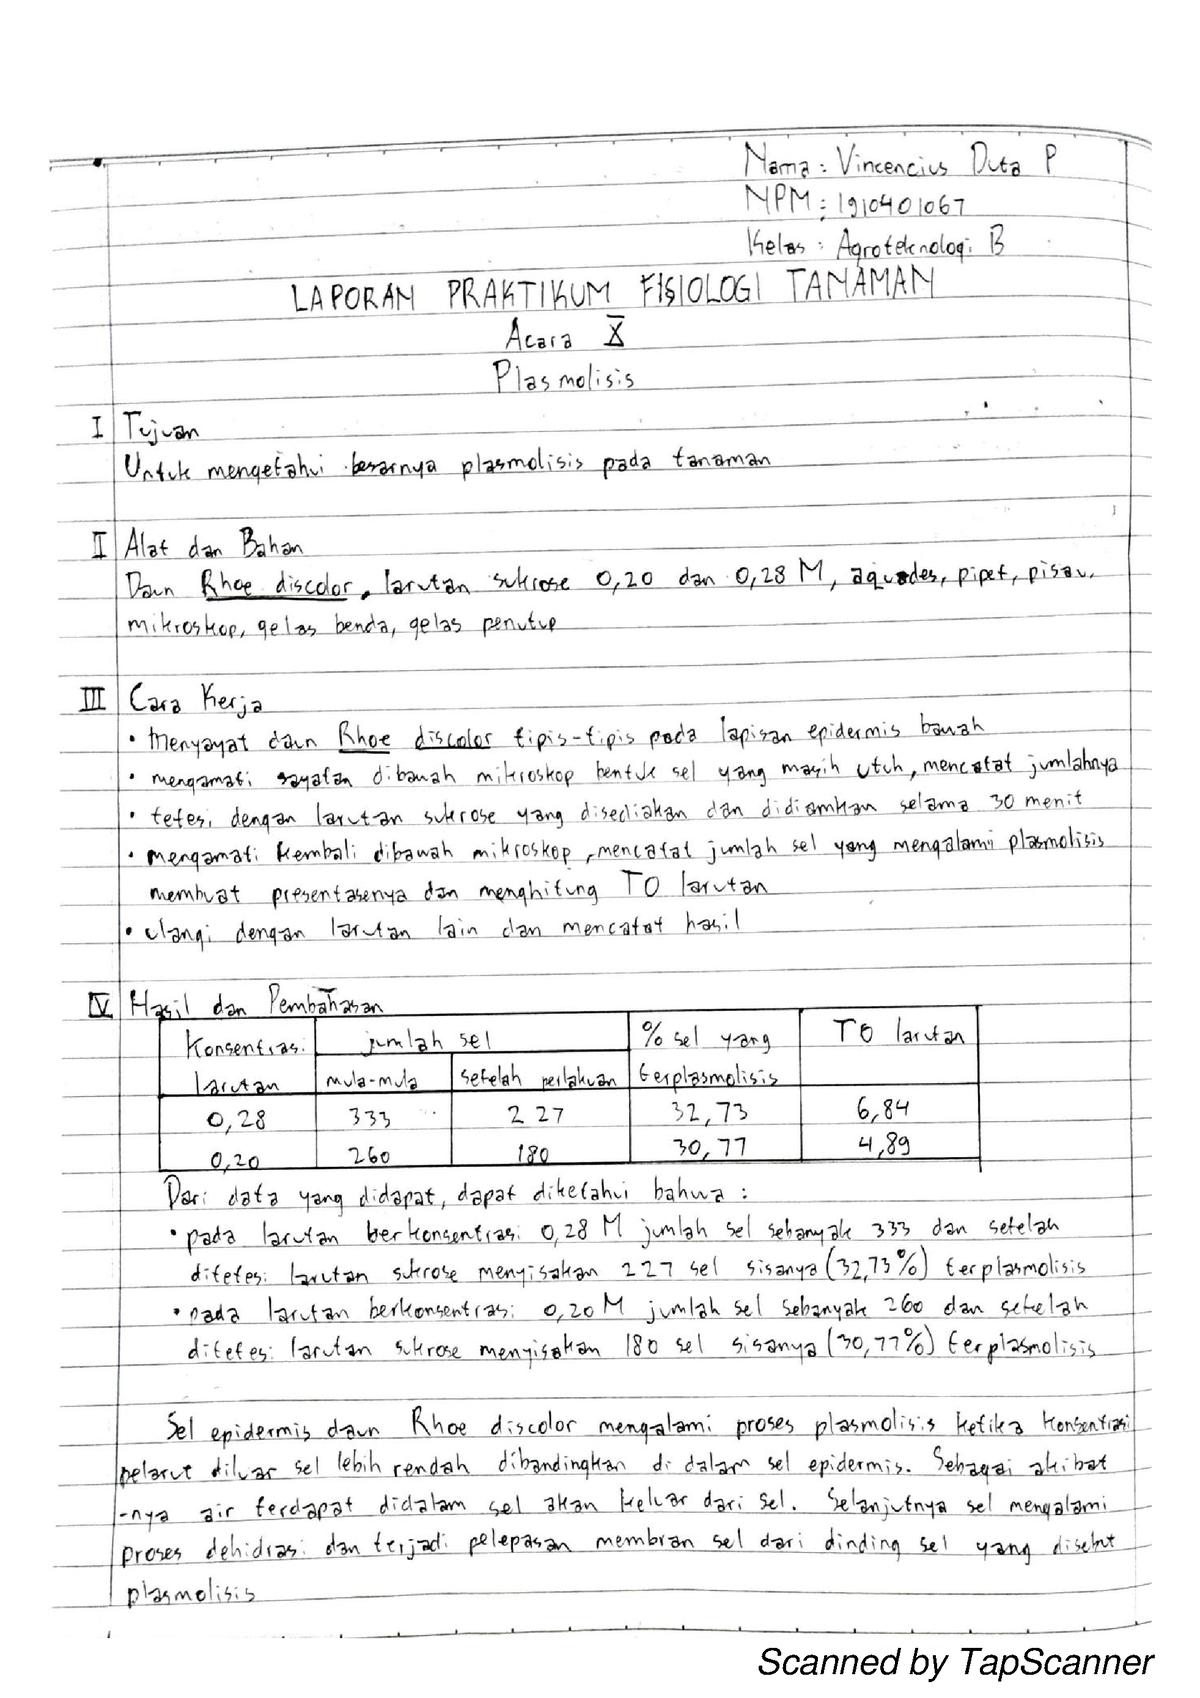 Nama : Vincencius Duta P
NPM : 1910401067
Kelas : Agroteknologi B
LAPORAN PRAKTIKUM FISIOLOGI TANAMAN
Acara X
Plasmolisis
I Tujuan
Untuk mengetahui besarnya plasmolisis pada tanaman
II Alat dan Bahan
Daun Rhoe discolor, larutan sukrose 0,20 dan 0,28 M, aquades, pipet, pisau,
mikroskop, gelas benda, gelas penutup
III Cara Kerja
• Menyayat daun Rhoe discolor tipis-tipis pada lapisan epidermis bawah
• mengamati sayatan dibawah mikroskop bentuk sel yang masih utuh, mencatat jumlahnya
• tetesi dengan larutan sukrose yang disediakan dan didiamkan selama 30 menit
• mengamati kembali dibawah mikroskop, mencatat jumlah sel yang mengalami plasmolisis
membuat presentasenya dan menghitung TO larutan
• ulangi dengan larutan lain dan mencatat hasil
IV Hasil dan Pembahasan
Konsentrasi jumlah sel % sel yang TO larutan
larutan mula-mula setelah perlakuan terplasmolisis
0,28 333 227 32,73 6,84
0,20 260 180 30,77 4,89
Dari data yang didapat, dapat diketahui bahwa :
• pada larutan berkonsentrasi 0,28 M jumlah sel sebanyak 333 dan setelah
ditetesi larutan sukrose menyisakan 227 sel sisanya (32,73%) terplasmolisis
• pada larutan berkonsentrasi 0,20 M jumlah sel sebanyak 260 dan setelah
ditetesi larutan sukrose menyisakan 180 sel sisanya (30,77%) terplasmolisis
Sel epidermis daun Rhoe discolor mengalami proses plasmolisis ketika konsentrasi
pelarut diluar sel lebih rendah dibandingkan di dalam sel epidermis. Sebagai akibat
-nya air terdapat didalam sel akan keluar dari sel. Selanjutnya sel mengalami
proses dehidrasi dan terjadi pelepasan membran sel dari dinding sel yang disebut
plasmolisis
Scanned by TapScanner